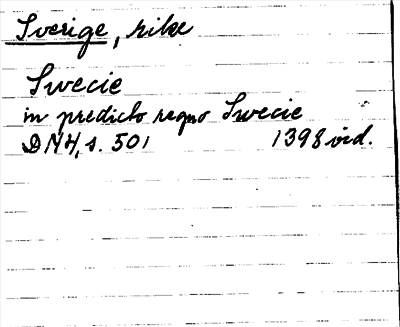 Sverige, rike
Swecie
in predicto regno Swecie
DN 4, s. 501 1398 vid.